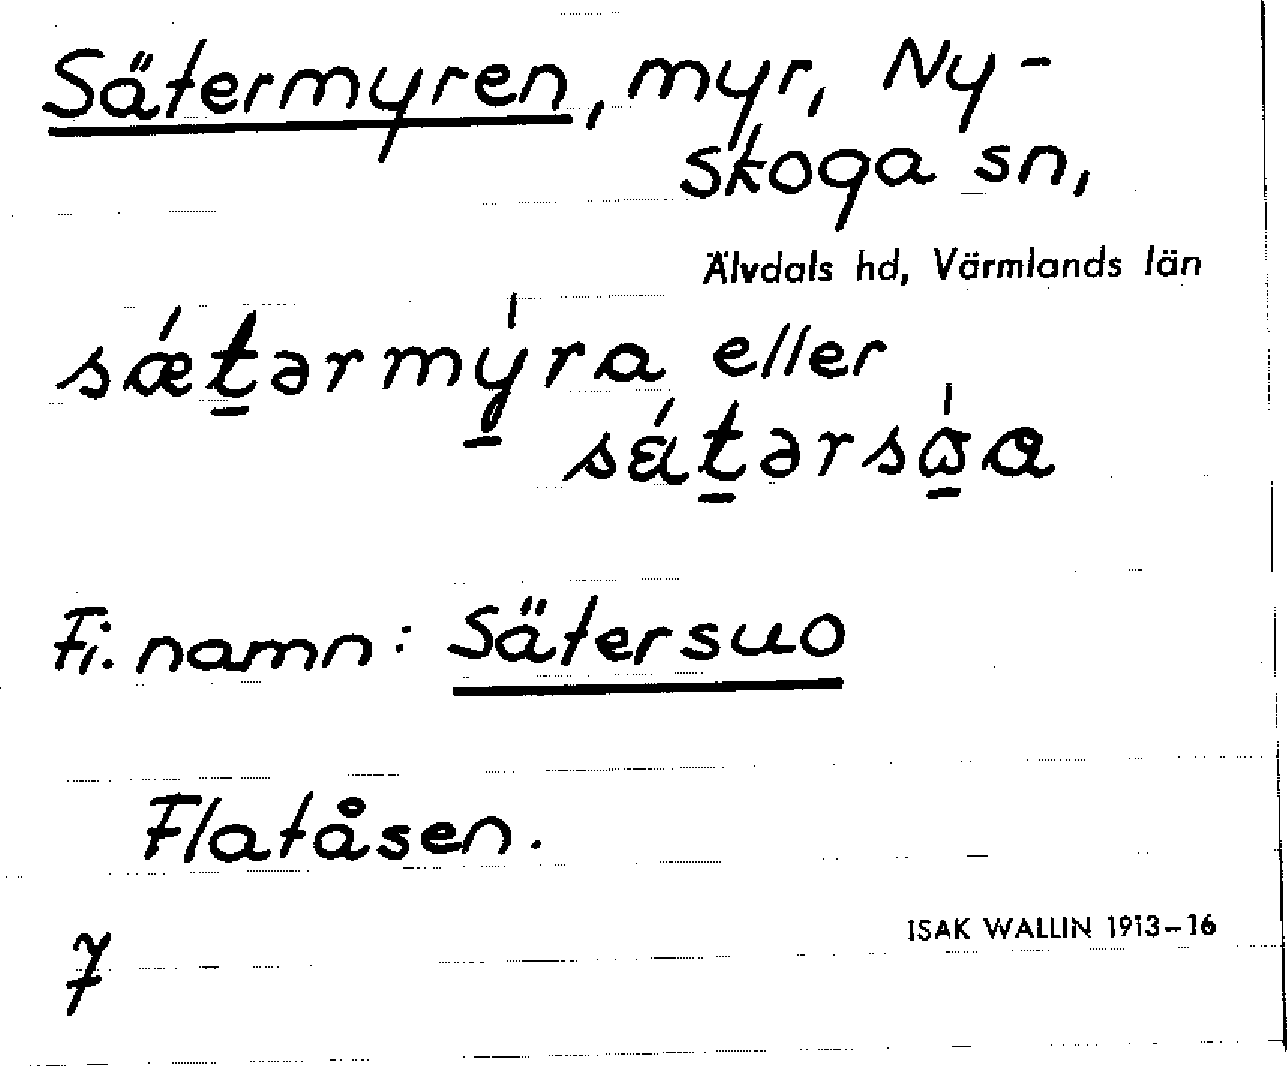 Sätermyren, myr, Ny-
skoga sn,
Älvdals hd, Värmlands län
sǽt̠ərmý̠ra eller
sát̠ərsώ̠a
Fi. namn: Sätersuo
Flatåsen.
7
ISAK WALLIN 1913-16